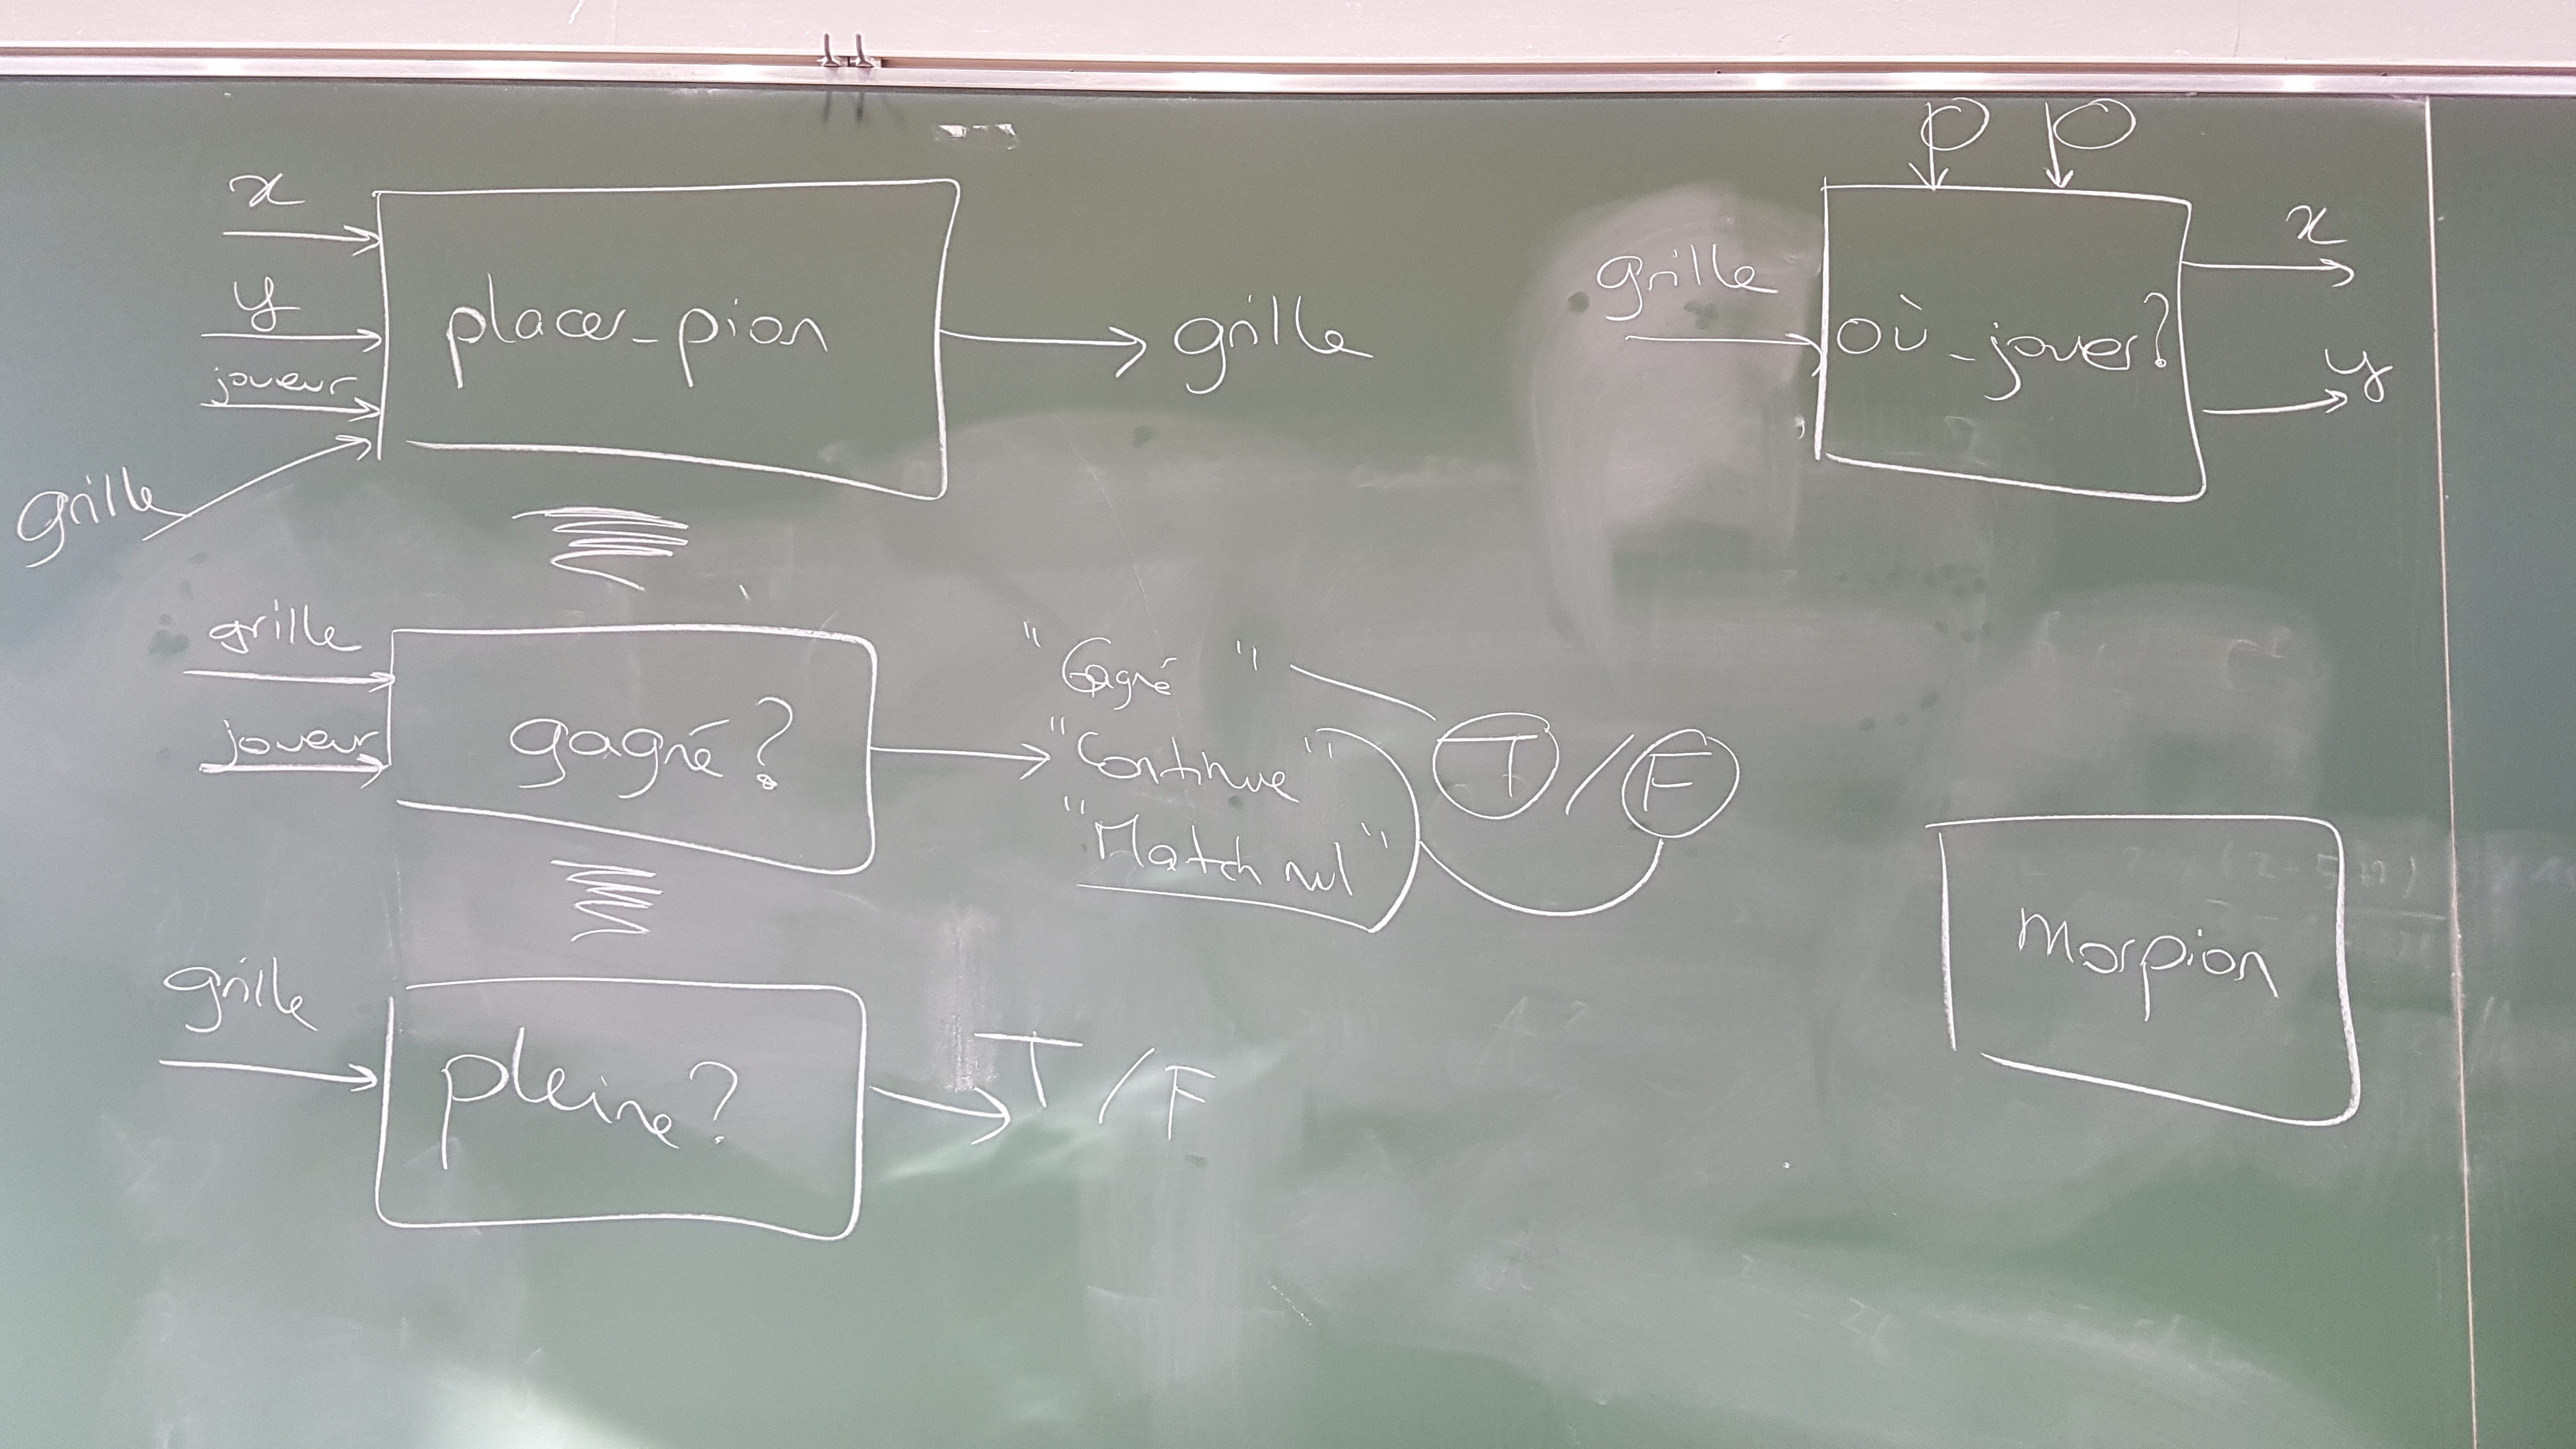 x
y
joueur
grille
placer_pion
grille
grille
où_jouer?
x
y
grille
joueur
gagné ?
"Gagné"
"Continue"
"Match nul"
T / F
grille
pleine ?
T / F
morpion